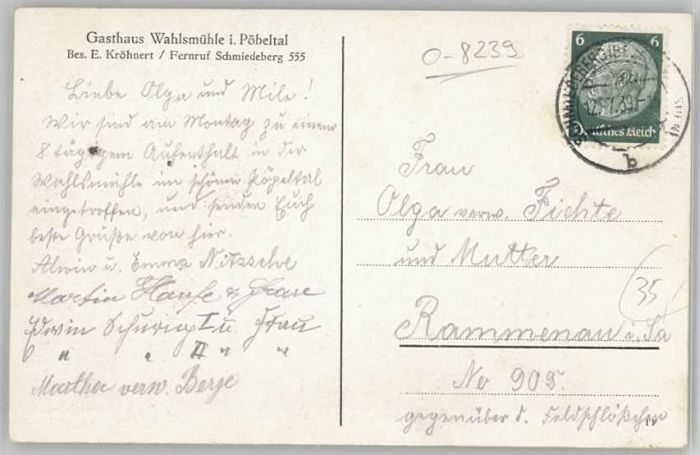 Gasthaus Wahlsmühle i. Pöbeltal
Bes. E. Kröhnert / Fernruf Schmiedeberg 555
Liebe Olga und Mile!
Wir sind am Montag zu einem
8 tägigem Aufenthalt in der
Wahlsmühle im schönen Pöpeltal
eingetroffen, und senden Euch
beste Grüße von hier.
Alwin u. Emma Nitzsche
Martin Haufe & Frau
Edwin Schurig I u. Frau
" " II " "
Martha verw. Berge
0-8239
6 6
Deutsches Reich
b
Frau
Olga verw. Fichte
und Mutter
Rammenau i. Sa
No 90
gegenüber d. Feldschlößchen
35